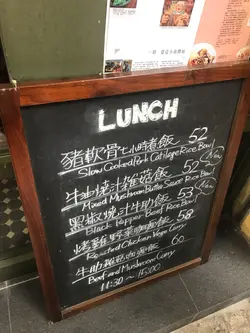 LUNCH
豬軟骨七小時煮飯 52
Slow Cooked Pork Catilage Rice Bowl
牛油燒汁雜菇飯 52
Mixed Mushroom Butter Sauce Rice Bowl
黑椒燒汁牛肋飯 53
Black Pepper Beef Rice Bowl
烤雞野菜咖喱飯 58
Roasted Chicken Vege Curry
牛肋雜菇咖喱飯 60
Beef and Mushroom Curry
11:30 ~ 15:00